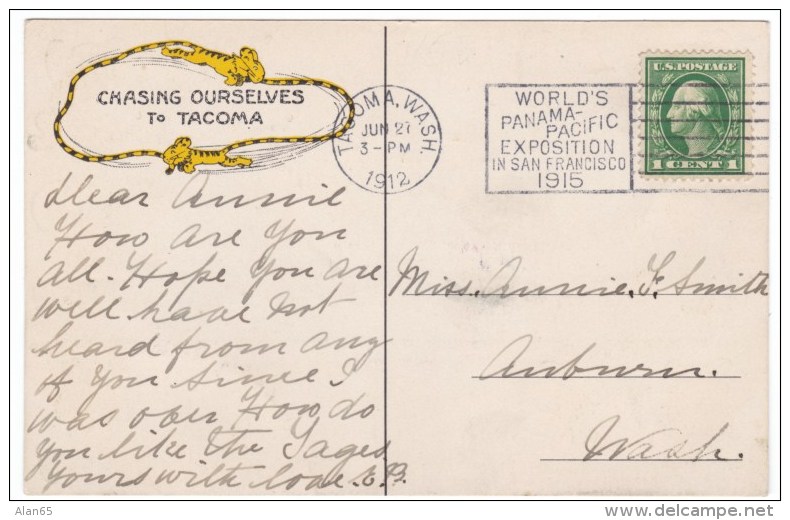 CHASING OURSELVES
TO TACOMA
TACOMA, WASH.
JUN 27
3-PM
1912
WORLD'S
PANAMA-
PACIFIC
EXPOSITION
IN SAN FRANCISCO
1915
U.S. POSTAGE
1 CENT 1
Dear Annie
How are You
all. Hope You are
well have not
heard from any
of You since I
was over How do
you like the Tages
Yours with love. E.B.
Miss. Annie. F. Smith
Auburn.
Wash.
Alan65
delcampe.net